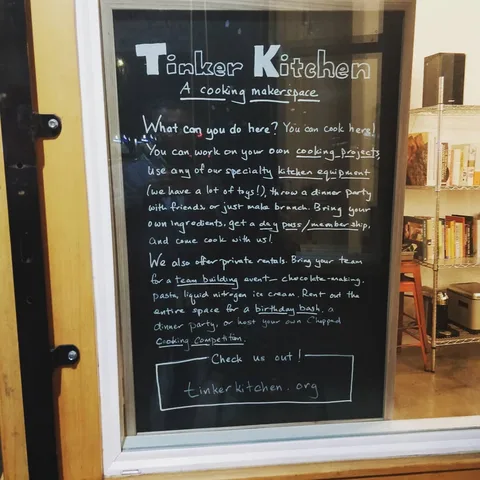 Tinker Kitchen
A cooking makerspace
What can you do here? You can cook here!
You can work on your own cooking projects,
use any of our specialty kitchen equipment
(we have a lot of toys!), throw a dinner party
with friends, or just make brunch. Bring your
own ingredients, get a day pass/membership,
and come cook with us!
We also offer private rentals. Bring your team
for a team building event- chocolate-making,
pasta, liquid nitrogen ice cream. Rent out the
entire space for a birthday bash, a
dinner party, or host your own Chopped
Cooking Competition.
Check us out!
tinkerkitchen.org